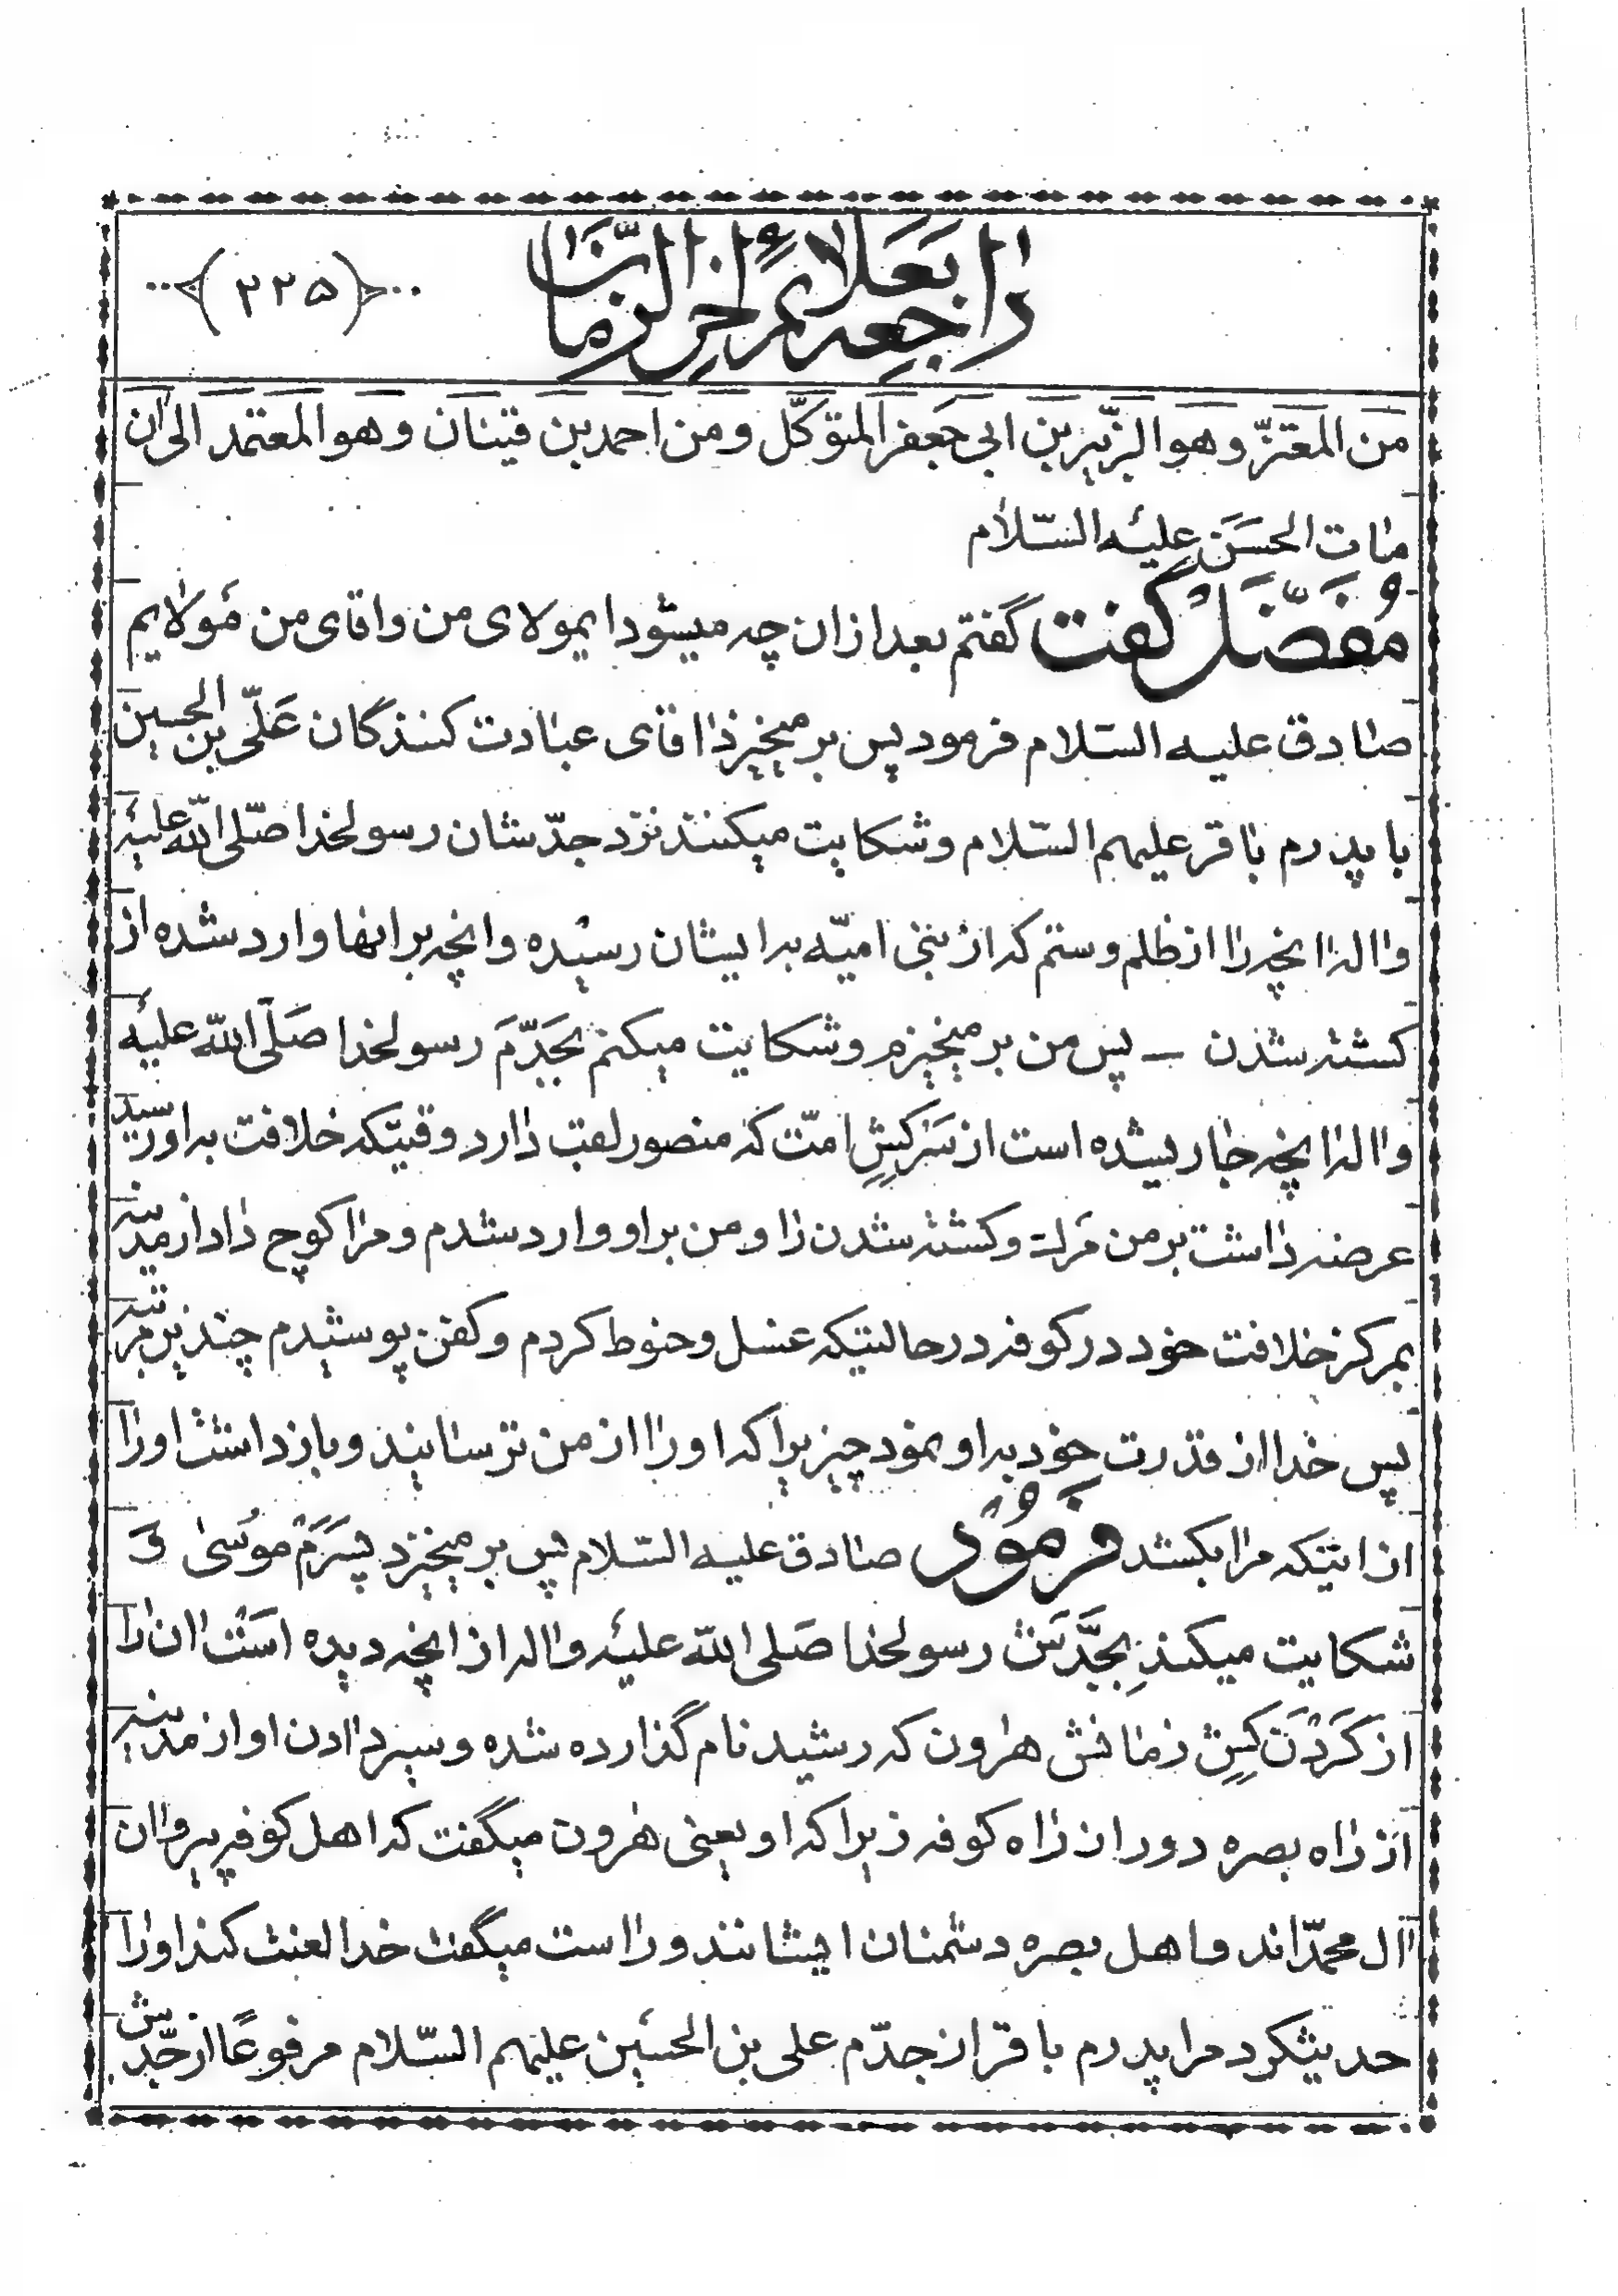 راجعه بعلائم اخر الزمان
(۲۲۵)
من المعتزّ وهو الزّبیر بن ابی جعفر المتوکّل ومن احمد بن قینان وهو المعتمد الی ان
مات الحسن علیه السّلام
مُفَضَّل گفت گفتم بعد از ان چه میشود ایمولای من واقای من مَولایم
صادق علیه السّلام فرمود پس برمیخیزد اقای عبادت کنندگان عَلّی بن الحسین
با پدرم باقر علیهم السّلام وشکایت میکنند نزد جدّشان رسولخدا صلّی اللّه علیه
واله انچه را از ظلم وستم که از بنی امیّه بدایشان رسیده وانچه بر انها وارد شده از
کشته شدن – پس من برمیخیزم وشکایت میکنم بجَدِّمَ رسولخدا صَلَّی اللّه علیه
واله انچه جاریشده است از سَرکِشِ امّت که منصور لقب دارد وقتیکه خلافت به او رسید
عرضه داشت بر من مَرك وکشته شدن را ومن بر او وارد شدم ومرا کوچ داد از مدینه
بمرکز خلافت خود در کوفه در حالتیکه غسل وحنوط کردم وکفن پوشیدم چندین مرتبه
پس خدا از قدرت خود به او نمود چیزیرا که او را از من ترسانید وبازداشت اورا
از اینکه مرا بکشد فرمُود صادق علیه السّلام پس برمیخیزد پسَرَمْ موُسیٰ وَ
شکایت میکند بِجَّدَش رسولخدا صَلی اللّه علیه واله از انچه دیده اسَت ان را
از کَرْدَن کِشِ زمانش هرون که رشید نام گذارده شده وسیر دادن او از مدینه
از راه بصره دور از راه کوفه زیرا که او یعنی هرون میگفت که اهل کوفه پیروان
ال محمّداند واهل بصره دشمنان ایشانند وراست میگفت خدا لعنت کند اورا
حدیثکرد مرا پدرم باقر از جدّم علی بن الحسین علیهم السّلام مرفوعًا از جدّش